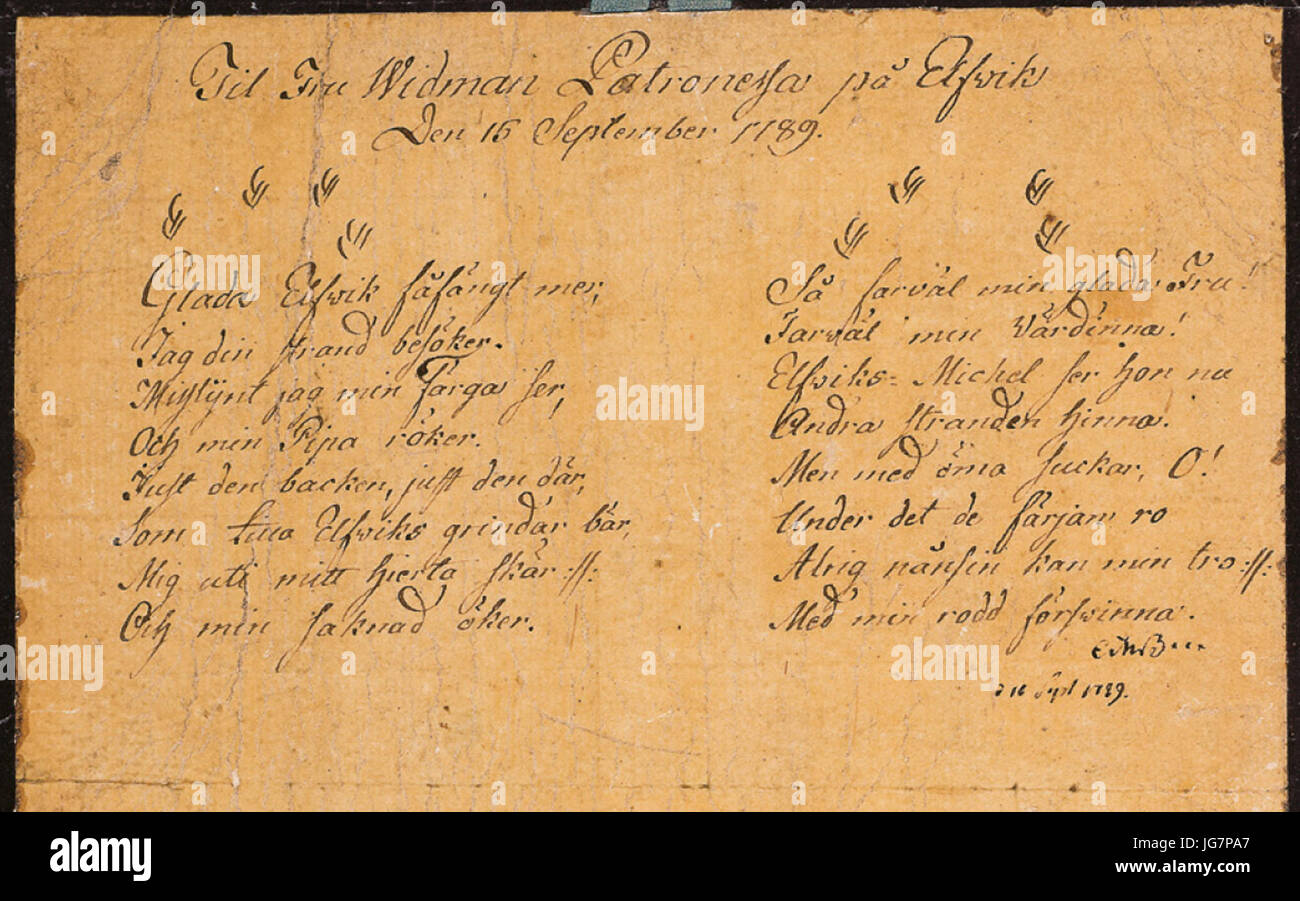 Til Fru Widman Patronessa på Elfwik
Den 15 September 1789.
Glada Elfwik fåfängt mer,
Jag din strand besöker.
Misslynt jag min Farga ser,
Och min Pipa röker.
Just den backen, just den där,
Som Elfwiks grindar bär,
Mig uti mitt hjerta skär :||:
Och min saknad öker.
Så farväl min glada Fru!
Farväl min Värdinna!
Elfwiks= Michel ser hon nu
Andra stranden hinna.
Men med öma suckar, O!
Under det de färjan ro
Alrig nånsin kan min tro :||:
Med min rodd förswinna.
CMB...
Sept 1789.
a alamy stock photo
alamy
Image ID: JG7PA7
www.alamy.com